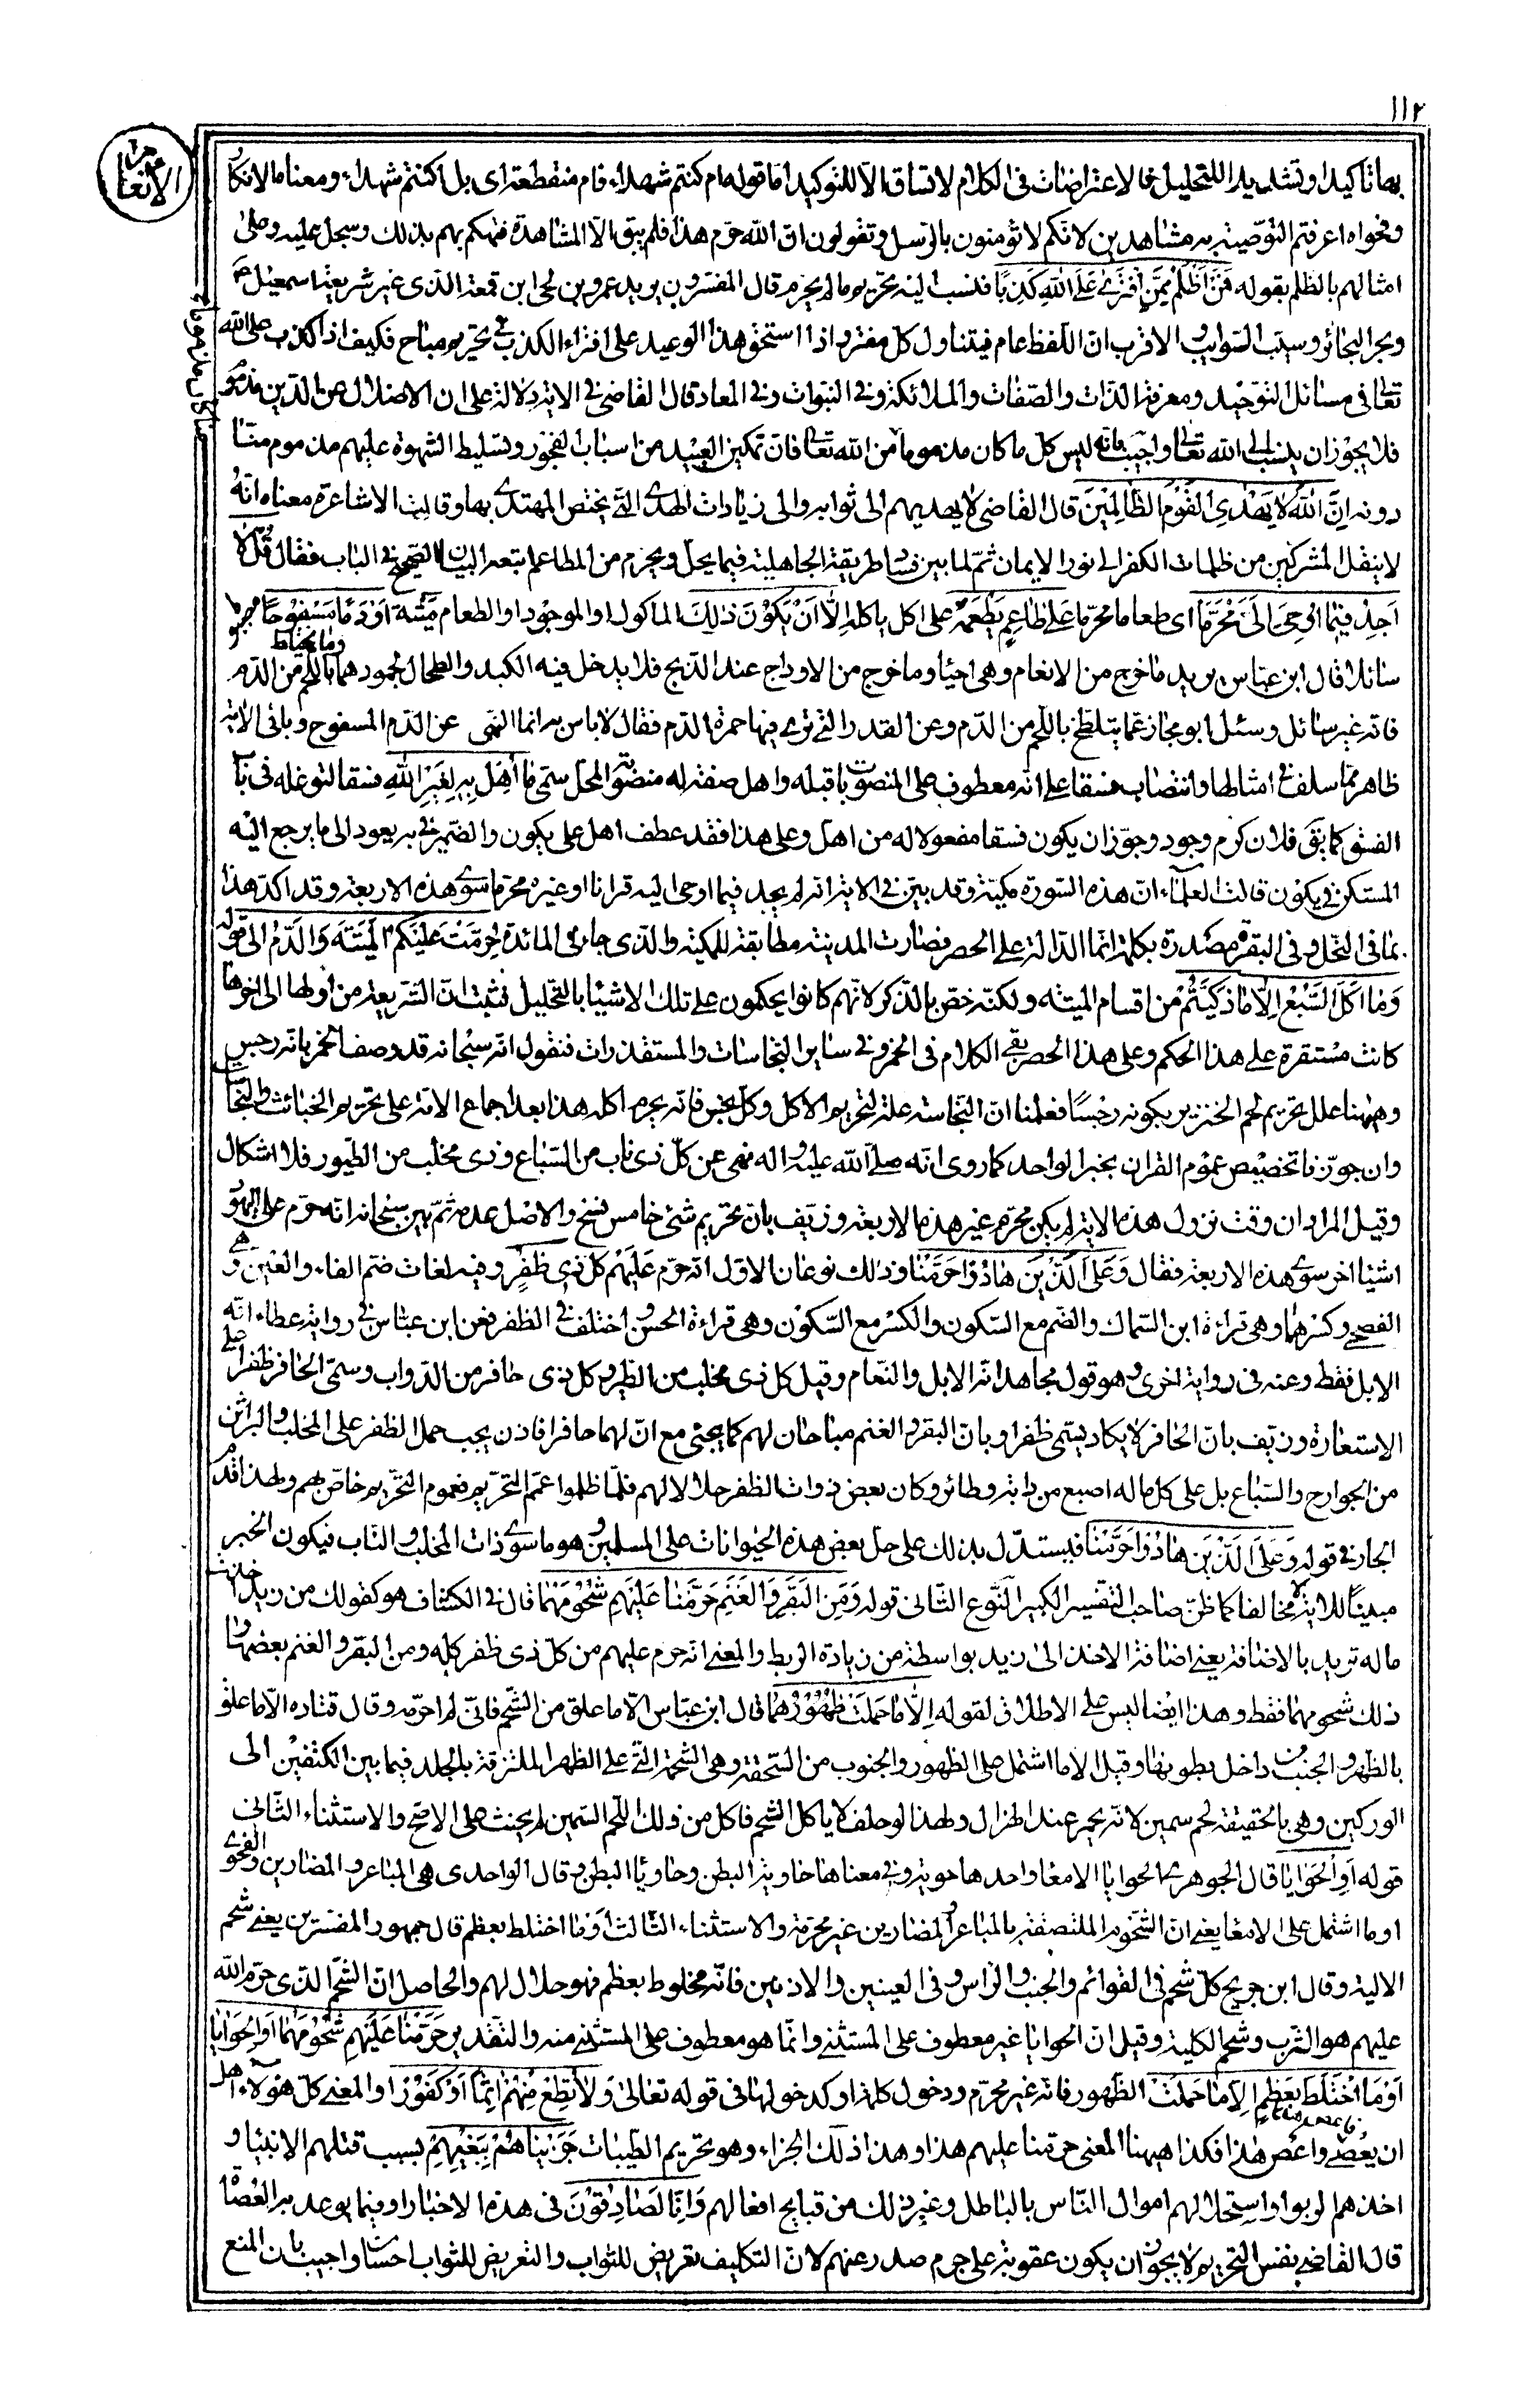 ١١٢
الانعام
بها تاكيدا وتشديدا للتحليل فالاعتراضات فى الكلام لا تساق الا للتوكيد اما قوله ام كنتم شهداء فام منقطعة اى بل اكنتم شهداء ومعناه الانكار
وفحواه اعرفتم التوصية به مشاهدين لانكم لا تؤمنون بالرسل وتقولون ان الله حرم هذا فلم يبق الا المشاهدة فتهكم بهم بذلك وسجل عليه وعلى
امثالهم بالظلم بقوله فَمَنْ اَظْلَمُ مِمَّنِ افْتَرٰى عَلَى اللهِ كَذِبًا فنسب اليه تحريم ما لم يحرم قال المفسرون يريد عمرو بن لحى ابن قمعة الذى غير شريعة اسمعيل
وبحر البحائر وسيب السوايب والاقرب ان اللفظ عام فيتناول كل مفتر واذا استحق هذا الوعيد على افتراء الكذب فى تحريم مباح فكيف اذا كذب على الله
تعالى فى مسائل التوحيد ومعرفة الذات والصفات والملائكة وفى النبوات وفى المعاد قال القاضى فى الاية دلالة على ان الاضلال عن الدين مذموم
فلا يجوز ان ينسب الى الله تعالى واجيب بانه ليس كل ما كان مذموما منا من الله تعالى فان تمكين العبيد من اسباب الفجور وتسليط الشهوة عليهم مذموم منا
دونه اِنَّ اللهَ لَا يَهْدِى الْقَوْمَ الظَّالِمِيْنَ قال القاضى لا يهديهم الى ثوابه والى زيادات الهدى التى يختص المهتدى بها وقالت الاشاعرة معناه انه
لا ينقل المشركين من ظلمات الكفر الى نور الايمان ثم لما بين فساد طريقة الجاهلية فيما يحل ويحرم من المطاعم اتبعه البيان الصحيح فى الباب فقال قُلْ لَا
اَجِدُ فِيْمَا اُوْحِىَ اِلَىَّ مُحَرَّمًا اى طعاما محرما عَلٰى طَاعِمٍ يَطْعَمُهٗ على اكل ياكله اِلَّا اَنْ يَكُوْنَ ذلك الماكول او الموجود او الطعام مَيْتَةً اَوْ دَمًا مَسْفُوْحًا
سائلا قال ابن عباس يريد ما خرج من الانعام وهى احياء وما خرج من الاوداج عند الذبح فلا يدخل فيه الكبد والطحال لجمودهما وما يختلط باللحم من الدم
فانه غير سائل وسئل ابو مجاز عما يتلطخ باللحم من الدم وعن القدر التى ترى فيها حمرة الدم فقال لا باس به انما النهى عن الدم المسفوح وباقى الاية
ظاهر مما سلف فى امثالها وانتصاب فسقا على انه معطوف على المنصوب قبله واهل صفة له منصوبة المحل سمى ما اُهِلَّ بِهٖ لِغَيْرِ اللهِ فسقا لتوغله فى باب
الفسق كما يق فلان كرم وجود وجوز ان يكون فسقا مفعولا له من اهل وعلى هذا فقد عطف اهل على يكون والضمير فى به يعود الى ما يرجع اليه
المستكن فى يكون قالت العلماء ان هذه السورة مكية وقد بين فى الاية انه لم يجد فيما اوحى اليه قرانا او غيره محرما سوى هذه الاربعة وقد اكد هذا
بما فى النحل وفى البقرة مصدرة بكلمة انما الدالة على الحصر فصارت المدينة مطابقة للمكية والذى جاء فى المائدة حُرِّمَتْ عَلَيْكُمُ الْمَيْتَةُ وَالدَّمُ الى قوله
وَمَا اَكَلَ السَّبُعُ اِلَّا مَا ذَكَّيْتُمْ من اقسام الميتة ولكنه خص بالذكر لانهم كانوا يحكمون على تلك الاشياء بالتحليل فثبت ان الشريعة من اولها الى اخرها
كانت مستقرة على هذا الحكم وعلى هذا الحصر بقى الكلام فى الخمر وفى ساير النجاسات والمستقذرات فنقول انه سبحانه قد وصف الخمر بانه رجس
وههنا علل تحريم لحم الخنزير بكونه رجسا فعلمنا ان النجاسة علة لتحريم الاكل وكل نجس فانه يحرم اكله هذا بعد اجماع الامة على تحريم الخبائث والنجاسات
وان جوزنا تخصيص عموم القران بخبر الواحد كما روى انه صلى الله عليه واله نهى عن كل ذى ناب من السباع وذى مخلب من الطيور فلا اشكال
وقيل المراد ان وقت نزول هذه الاية لم يكن محرم غير هذه الاربعة وزيف بان تحريم شئ خامس نسخ والاصل عدمه ثم بين سبحانه انه حرم على اليهود
اشياء اخر سوى هذه الاربعة فقال وَعَلَى الَّذِيْنَ هَادُوْا حَرَّمْنَا وذلك نوعان الاول انه حرم عليهم كل ذى ظُفُرٍ وفيه لغات ضم الفاء والعين وهى
الفصحى وكسرهما وهى قراءة ابن السماك والضم مع السكون والكسر مع السكون وهى قراءة الحسن واختلف فى الظفر فعن ابن عباس فى رواية عطاء انه
الابل فقط وعنه فى رواية اخرى وهو قول مجاهد انه الابل والنعام وقيل كل ذى مخلب من الطير وكل ذى حافر من الدواب وسمى الحافر ظفرا على
الاستعارة وزيف بان الحافر لا يكاد يسمى ظفرا وبان البقر والغنم مباحان لهم كما يجئ مع ان لهما حافرا فاذن يجب حمل الظفر على المخلب والبراثن
من الجوارح والسباع بل على كل ما له اصبع من دابة وطائر وكان بعض ذوات الظفر حلالا لهم فلما ظلموا عمم التحريم فعموم التحريم خاص بهم ولهذا قدم
الجار فى قوله وَعَلَى الَّذِيْنَ هَادُوْا حَرَّمْنَا فيستدل بذلك على حل بعض هذه الحيوانات على المسلمين وهو ما سوى ذات المخلب والناب فيكون الخبر
مبينا للاية لا مخالفا كما ظن صاحب التفسير الكبير النوع الثانى قوله وَمِنَ الْبَقَرِ وَالْغَنَمِ حَرَّمْنَا عَلَيْهِمْ شُحُوْمَهُمَا قال فى الكشاف هو كقولك من زيد اخذت
ماله تريد بالاضافة يعنى اضافة الاخذ الى زيد بواسطة من زيادة الربط والمعنى انه حرم عليهم من كل ذى ظفر كله ومن البقر والغنم بعضهما و
ذلك شحومهما فقط وهذا ايضا ليس على الاطلاق لقوله اِلَّا مَا حَمَلَتْ ظُهُوْرُهُمَا قال ابن عباس الا ما علق من الشحم فانى لم احرمه وقال قتادة الا ما علق
بالظهر والجنب من داخل بطونها وقيل الا ما اشتمل على الظهور والجنوب من السحفة وهى الشحمة التى على الظهر الملتزقة بالجلد فيما بين الكتفين الى
الوركين وهى بالحقيقة لحم سمين لانه يحمر عند الهزال ولهذا لو حلف لا ياكل الشحم فاكل من ذلك اللحم السمين لم يحنث على الاصح والاستثناء الثانى
قوله اَوِ الْحَوَايَا قال الجوهرى الحوايا الامعاء واحدها حوية وفى معناها حاوية البطن وحاوياء البطن قال الواحدى هى المباعر والمصارين والفحوى
او ما اشتمل على الامعاء يعنى ان الشحوم الملتصقة بالمباعر والمصارين غير محرمة والاستثناء الثالث اَوْ مَا اختلط بعظم قال جمهور المفسرين يعنى شحم
الالية وقال ابن جريج كل شحم فى القوائم والجنب والراس وفى العينين والاذنين فانه مخلوط بعظم فهو حلال لهم والحاصل ان الشحم الذى حرمه الله
عليهم هو الثرب وشحم الكلية وقيل ان الحوايا غير معطوف على المستثنى وانما هو معطوف على المستثنى منه والتقدير حَرَّمْنَا عَلَيْهِمْ شُحُوْمَهُمَا اَوِ الْحَوَايَا
اَوْ مَا اخْتَلَطَ بِعَظْمٍ اِلَّا مَا حَمَلَتْ الظهور فانه غير محرم ودخول كلمة او كدخولها فى قوله تعالى وَلَا تُطِعْ مِنْهُمْ اٰثِمًا اَوْ كَفُوْرًا والمعنى كل هؤلاء اهل
ان يعصى فاعص هذا واعص هذا فكذا ههنا المعنى حرمنا عليهم هذا وهذا ذٰلِكَ الجزاء وهو تحريم الطيبات جَزَيْنَاهُمْ بِبَغْيِهِمْ بسبب قتلهم الانبياء و
اخذهم الربوا واستحلالهم اموال الناس بالباطل وغير ذلك من قبايح افعالهم وَاِنَّا لَصَادِقُوْنَ فى هذه الاخبار او فيما يوعد به العصاة
قال القاضى نفس التحريم لا يجوز ان يكون عقوبة على جرم صدر عنهم لان التكليف تعريض للثواب والتعريض للثواب احسان واجيب بان المنع